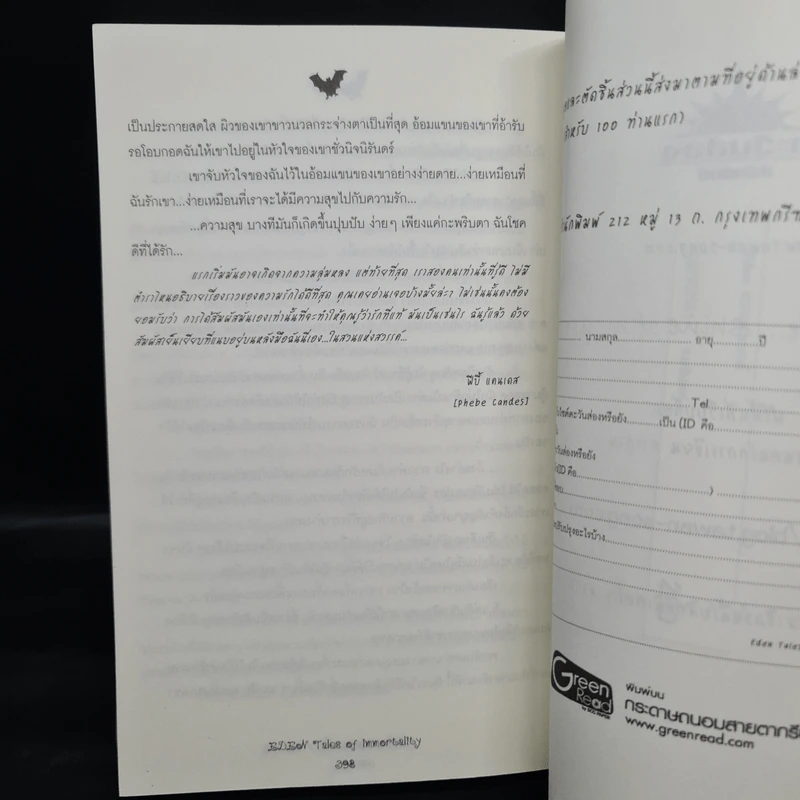 เป็นประกายสดใส ผิวของเขาขาวนวลกระจ่างตาเป็นที่สุด อ้อมแขนของเขาที่อ้ารับ
รอโอบกอดฉันให้เขาไปอยู่ในหัวใจของเขาชั่วนิจนิรันดร์
เขาจับหัวใจของฉันไว้ในอ้อมแขนของเขาอย่างง่ายดาย...ง่ายเหมือนที่
ฉันรักเขา...ง่ายเหมือนที่เราจะได้มีความสุขไปกับความรัก...
...ความสุข บางทีมันก็เกิดขึ้นปุบปับ ง่ายๆ เพียงแค่กะพริบตา ฉันโชค
ดีที่ได้รัก...
แรกเริ่มมันอาจเกิดจากความลุ่มหลง แต่ท้ายที่สุด เราสองคนเท่านั้นที่รู้ดี ไม่มี
ตำราไหนอธิบายเรื่องราวของความรักได้ดีที่สุด คุณเคยอ่านเจอบ้างมั้ยล่ะ? ไม่เช่นนั้นคงต้อง
ยอมรับว่า การได้สัมผัสมันเองเท่านั้นที่จะทำให้คุณรู้ว่ารักที่แท้ มันเป็นเช่นไร ฉันรู้แล้ว ด้วย
สัมผัสเย็นเยียบที่แนบอยู่บนหลังมือฉันนี่เอง...ในสวนแห่งสวรรค์...
ฟีบี้ แคนเดส
[Phebe Candes]
EDEN Tales of Immortality
398
และตัดชิ้นส่วนนี้ส่งมาตามที่อยู่ด้านล่
สำหรับ 100 ท่านแรก)
นักพิมพ์ 212 หมู่ 13 ถ. กรุงเทพกรีฑ
นามสกุล อายุ ปี
Tel.
ไซต์ตะวันส่องหรือยัง เป็น (ID คือ
วันส่องหรือยัง
(ID คือ )
ปรับปรุงอะไรบ้าง
Eden Tales
Green Read
พิมพ์บน
กระดาษถนอมสายตากรี
www.greenread.com